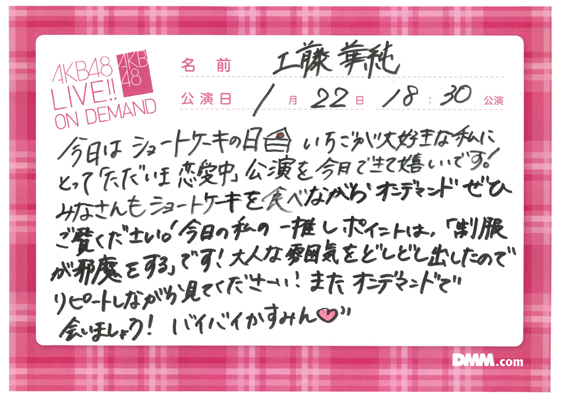 AKB48
LIVE!!
ON DEMAND
AKB
48
名前 工藤華純
公演日 1月22日 18:30公演
今日はショートケーキの日 いちごが大好きな私に
とって「ただいま 恋愛中」公演を今日で生て嬉しいです!
みなさんもショートケーキを食べながらオンデマンドぜひ
ご覧ください!今日の私の一推しポイントは、「制服
が邪魔をする」です!大人な雰囲気をどしどし出したので
リピートしながら見てくださーい!またオンデマンドで
会いましょう! バイバイかすみん
DMM.com